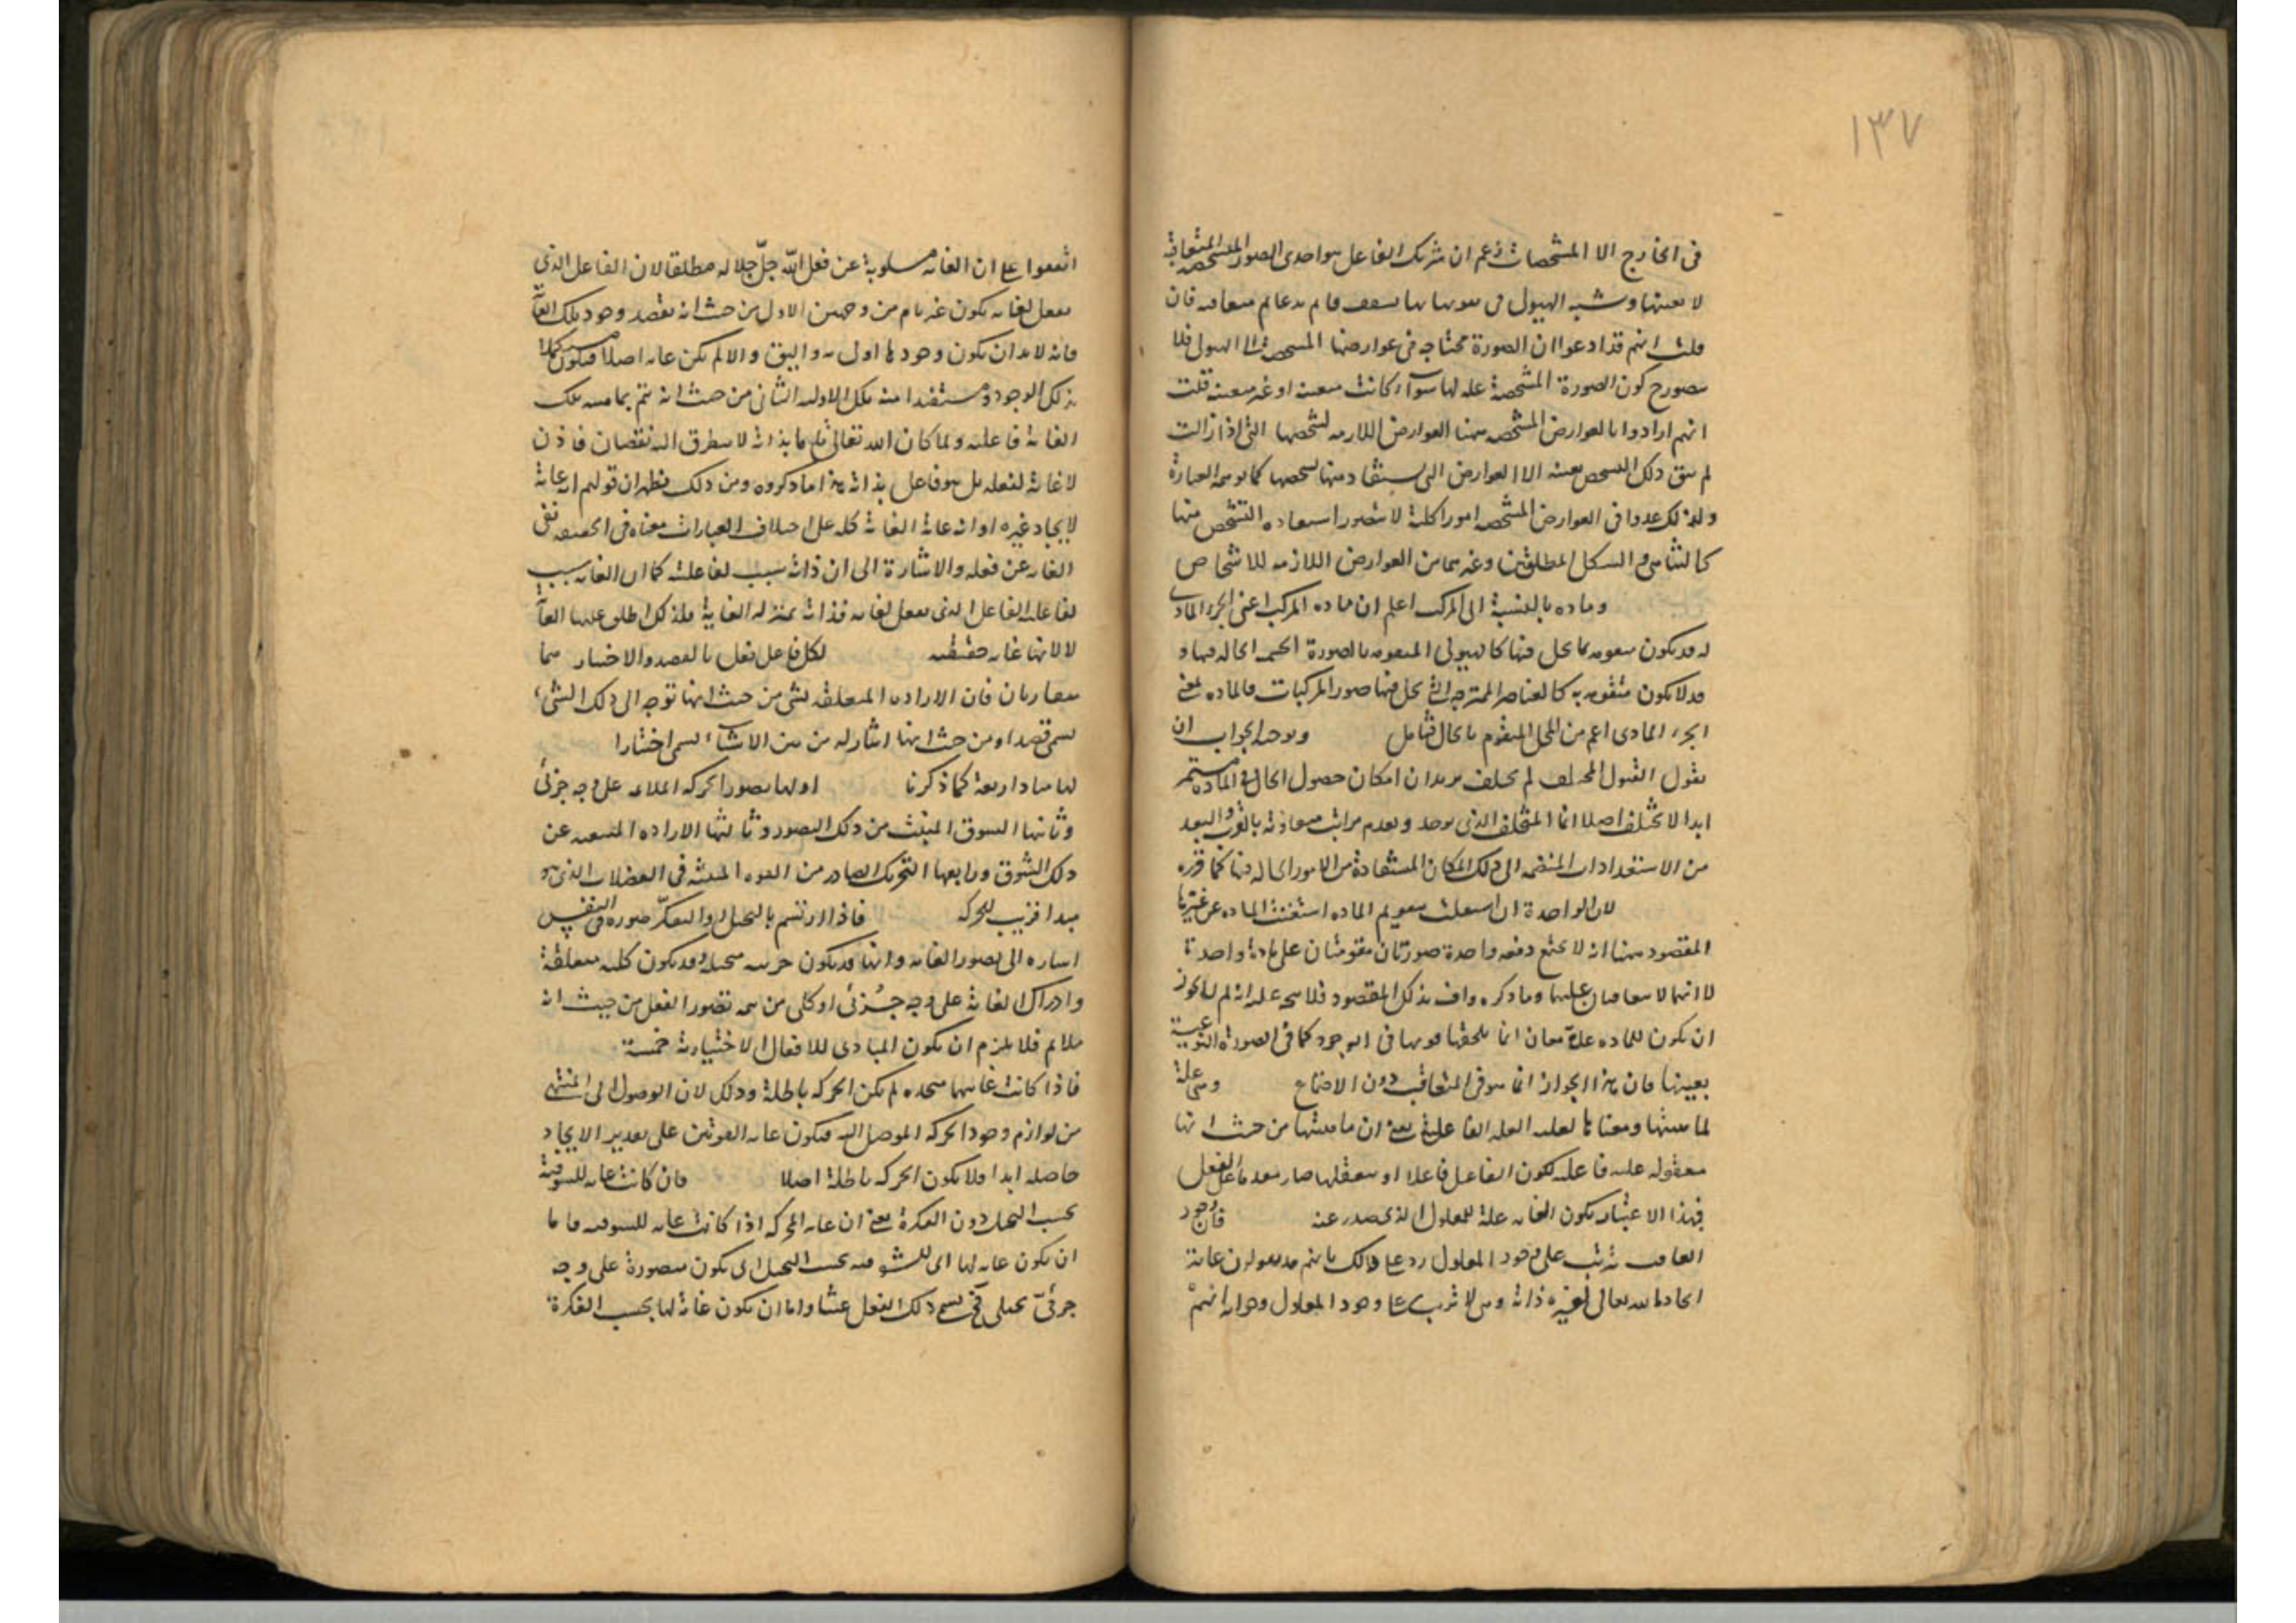 ١٣٧
فى الخارج الا المشخصات زعم ان شريك الفاعل هو احدى الصور المشخصة المتعاقبة
لا بعينها وشبه الهيولى فى تقومها بها بسقف قايم بدعايم متعاقبة فان
قلت انهم قد ادعوا ان الصورة محتاجة فى عوارضها المشخصة الى الهيولى فلا
يتصور ح كون الصورة المشخصة علة لها سواء كانت معينة او غير معينة قلت
انهم ارادوا بالعوارض المشخصة ههنا العوارض اللازمة لشخصها التى اذا زالت
لم يبق ذلك الشخص بعينه الا العوارض التى يستفاد منها تشخصها كما توهمه العبارة
ولذلك عدوا فى العوارض المشخصة امورا كلية لا يتصور استفادة التشخص منها
كالتناهى والشكل المطلقين وغيرهما من العوارض اللازمة للاشخاص
وماده بالنسبة الى المركب اعلم ان مادة المركب اعنى الجزء المادى
له قد يكون متقومة بما يحل فيها كالهيولى المتقومة بالصورة الجسمية الحالة فيها و
قد لا يكون متقومة به كالعناصر الممتزجة التى يحل فيها صور المركبات فالمادة بمعنى
الجزء المادى اعم من المحل المتقوم بالحال فتامل وتوجيه الجواب ان
يقول القبول المختلف لم يختلف يريد ان امكان حصول الحال فى المادة مستمر
ابدا لا يختلف اصلا انما المختلف الذى يوجد ويعدم مراتب متفاوتة بالقرب والبعد
من الاستعدادات المنضمة الى ذلك الامكان المستفادة من الامور الحالة فيها كما قرره
لان الواحدة ان استقلت بتقويم المادة استغنت المادة عن غيرها
المقصود ههنا انه لا يجتمع دفعة واحدة صورتان مقومتان على مادة واحدة
لا انهما لا يتعاقبان عليها وما ذكره واف بذلك المقصود فلا يتجه عليه انه لم لا يجوز
ان يكون للمادة علة معان انما يلحقها قوتها فى الوجود كما فى الصورة النوعية
بعينها فان هذا الجواز انما هو فى المتعاقب دون الاجتماع وهى علة
لماهيتها ومعناها لعلية العلة الفاعلية يعنى ان ماهيتها من حيث انها
معقولة علية فاعلة لكون الفاعل فاعلا او بتعقلها صار مفيدا فاعل الفعل
فبهذا الاعتبار يكون الغاية علة للمعلول الذى يصدر عنه فان وجود
الغاية يترتب على وجود المعلول رد على ذلك بانهم قد يقولون غاية
ايجاد الله تعالى لغيره ذاته وهى لا تترتب على وجود المعلول وجوابه انهم
اتفقوا على ان الغاية مسلوبة عن فعل الله جل جلاله مطلقا لان الفاعل الذى
يفعل لغاية يكون غير تام من وجهين الاول من حيث انه يقصد وجود تلك الغاية
فانه لا بد ان يكون وجودها اولى به واليق والا لم يكن غاية اصلا فيكون مستكملا
بذلك الوجود ومستفيدا منه تلك الاولية الثانى من حيث انه يتم بماهية تلك
الغاية فاعليته ولما كان الله تعالى تاما بذاته لا يتطرق اليه نقصان فاذن
لا غاية لفعله بل هو فاعل بذاته هذا ما ذكروه ومن ذلك يظهر ان قولهم انه غاية
لايجاد غيره او انه غاية الغاية كله على اختلاف العبارات معناه فى الحقيقة نفى
الغاية عن فعله والاشارة الى ان ذاته سبب لفاعليته كما ان الغاية سبب
لفاعلية الفاعل الذى يفعل لغاية فذاته بمنزلة الغاية فلذلك اطلق عليها الغاية
لا لانها غاية حقيقة لكل فاعل يفعل بالقصد والاختيار هما
متقاربان فان الارادة المتعلقة بشئ من حيث انها توجه الى ذلك الشئ
يسمى قصدا ومن حيث انها ايثار له من بين الاشياء يسمى اختيارا
لها مبادا اربعة كما ذكرنا اولها تصور الحركة الملايمة على وجه جزئى
وثانيها الشوق المنبعث من ذلك التصور وثالثها الارادة المنبعثة عن
ذلك الشوق ورابعها التحريك الصادر من القوة المنبثة فى العضلات الذى هو
مبدا قريب للحركة فاذا ارتسم بالتخيل او التفكر صورة فى النفس
اشارة الى تصور الغاية وانها قد يكون جزئية متخيلة وقد يكون كلية متعلقة
وادراك الغاية على وجه جزئى او كلى من تتمه تصور الفعل من حيث انه
ملايم فلا يلزم ان يكون المبادى للافعال الاختيارية خمسة
فاذا كانت غايتهما متحدة لم يكن الحركة باطلة وذلك لان الوصول الى المنتهى
من لوازم وجود الحركة الموصل اليه فيكون غاية القوتين على تقدير الاتحاد
حاصلة ابدا فلا يكون الحركة باطلة اصلا فان كانت غاية للشوقية
بحسب التخيل دون الفكرة يعنى ان غاية الحركة اذا كانت غاية للشوقية فاما
ان يكون غاية لها اى للشوقية بحسب التخيل اى يكون متصورة على وجه
جزئى تخيلى فح يسمى ذلك الفعل عبثا واما ان يكون غاية لها بحسب الفكرة